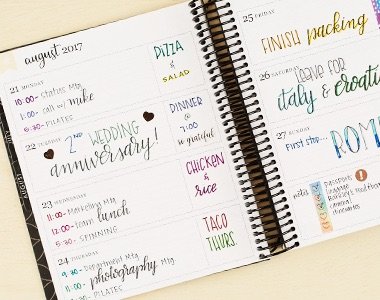 august 2017
21 MONDAY
10:00- Status Mtg
1:00- call w/ mike
6:30- PILATES
PIZZA
&
SALAD
22 TUESDAY
2nd WEDDING
anniversary!
DINNER
@
7:00
@ grateful
23 WEDNESDAY
11:00- Marketing Mtg
12:00- team lunch
5:30- SPINNING
CHICKEN
&
rice
24 THURSDAY
9:30- Department Mtg
11:00- photography Mtg
PILATES
TACO
THURS.
25 FRIDAY
FINISH packing
26 SATURDAY
leave for
italy & croatia
27 SUNDAY
First stop...
ROM
notes
passports